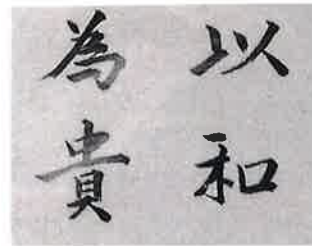 以和
為貴